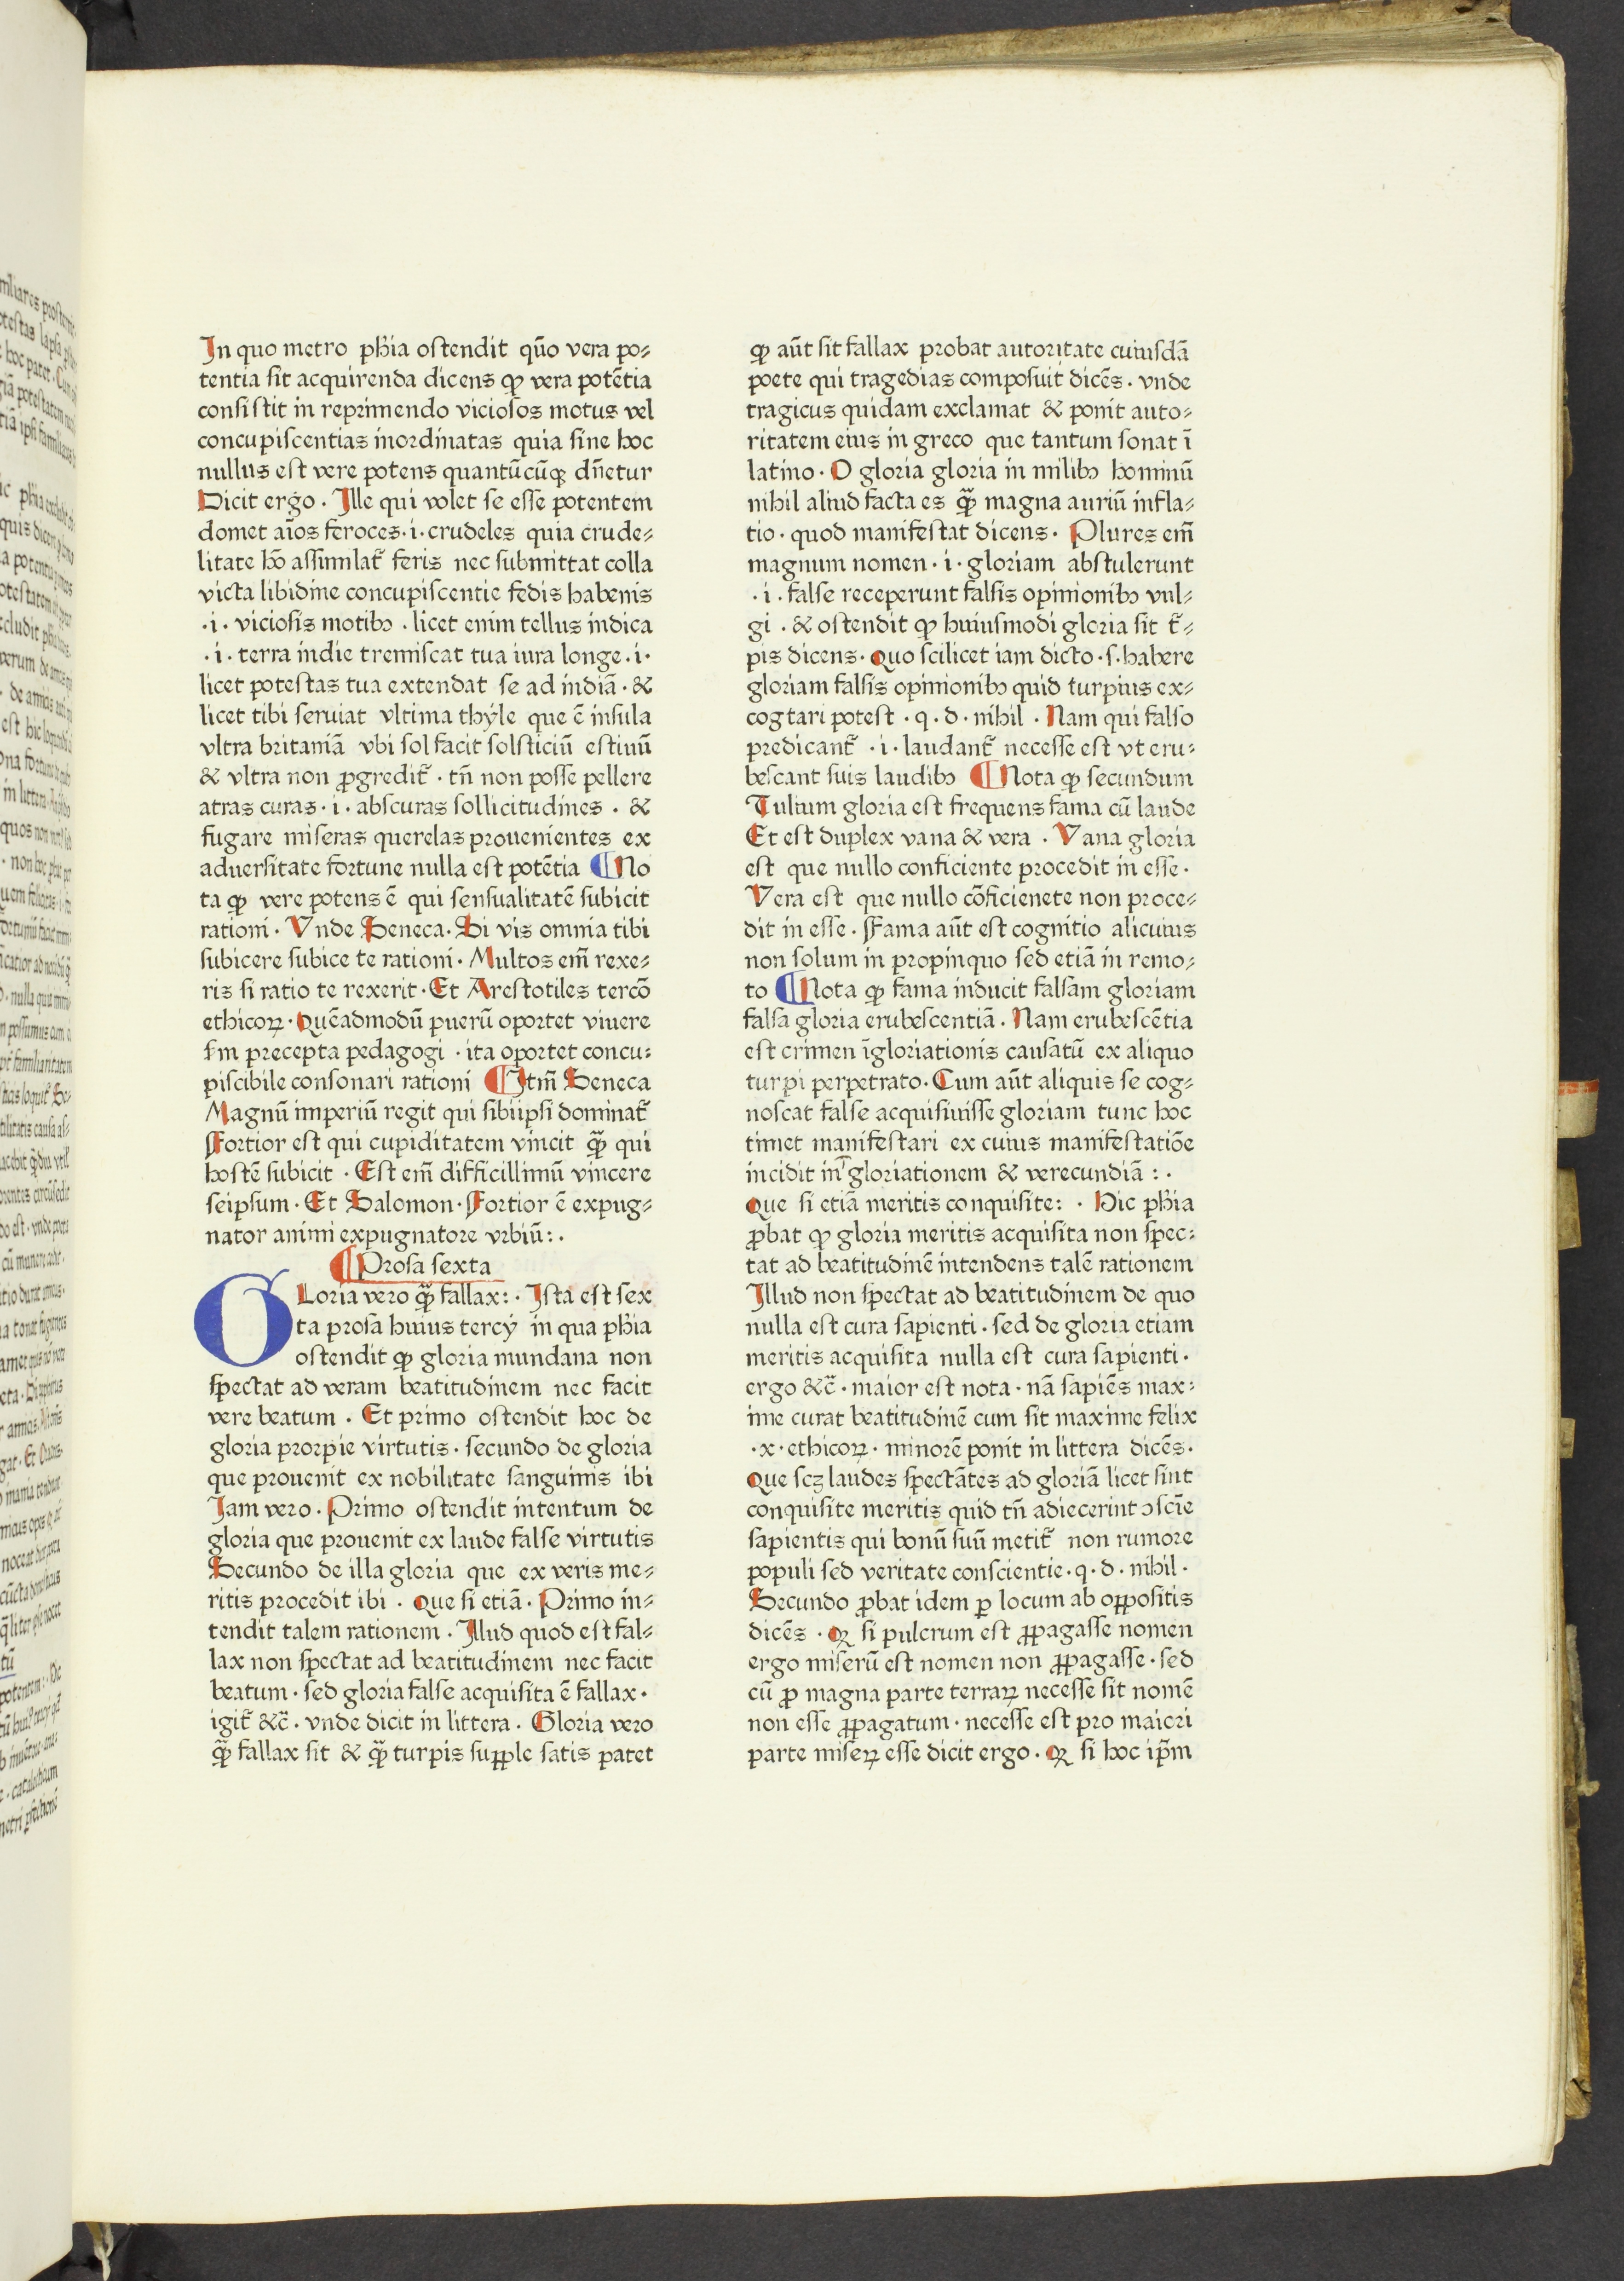 In quo metro ph̄ia ostendit qūo vera po⸗
tentia sit acquirenda dicens ꝙ vera potētia
consistit in reprimendo viciosos motus vel
concupiscentias inordinatas quia sine hoc
nullus est vere potens quantūcūqꝫ dn̄etur
Dicit ergo · Ille qui volet se esse potentem
domet aīos feroces · i · crudeles quia crude⸗
litate hō assimilat᷑ feris nec submittat colla
victa libidine concupiscentie fedis habenis
· i · viciosis motibꝰ · licet enim tellus indica
· i · terra indie tremiscat tua iura longe · i ·
licet potestas tua extendat se ad indiā · &
licet tibi seruiat vltima thyle que ē insula
vltra britaniā vbi sol facit solsticiū estiuū
& vltra non ꝓgredit᷑ · tn̄ non posse pellere
atras curas · i · abscuras sollicitudines · &
fugare miseras querelas prouenientes ex
aduersitate fortune nulla est potētia ¶ No
ta ꝙ vere potens ē qui sensualitatē subicit
rationi · Vnde Seneca · Si vis omnia tibi
subicere subice te rationi · Multos em̄ rexe⸗
ris si ratio te rexerit · Et Arestotiles tercō
ethicoꝝ · Quēadmodū puerū oportet viuere
ẜm precepta pedagogi · ita oportet concu⸗
piscibile consonari rationi ¶ Itm̄ Seneca
Magnū imperiū regit qui sibiipsi dominat᷑
Fortior est qui cupiditatem vincit qᷓ qui
hostē subicit · Est em̄ difficillimū vincere
seipsum · Et Salomon · Fortior ē expug⸗
nator animi expugnatore vrbiū : ·
¶ Prosa sexta
GLoria vero qᷓ fallax : · Ista est sex
ta prosa huius tercÿ in qua ph̄ia
ostendit ꝙ gloria mundana non
spectat ad veram beatitudinem nec facit
vere beatum · Et primo ostendit hoc de
gloria prorpie virtutis · secundo de gloria
que prouenit ex nobilitate sanguinis ibi
Iam vero · Primo ostendit intentum de
gloria que prouenit ex laude false virtutis
Secundo de illa gloria que ex veris me⸗
ritis procedit ibi · Que si etiā · Primo in⸗
tendit talem rationem · Illud quod est fal⸗
lax non spectat ad beatitudinem nec facit
beatum · sed gloria false acquisita ē fallax ·
igit᷑ &c̄ · vnde dicit in littera · Gloria vero
qᷓ fallax sit & qᷓ turpis suꝑple satis patet
ꝙ aūt sit fallax probat autoritate cuiusdā
poete qui tragedias composuit dicēs · vnde
tragicus quidam exclamat & ponit auto⸗
ritatem eius in greco que tantum sonat ī
latino · O gloria gloria in milibꝰ hominū
nihil aliud facta es qᷓ magna auriū infla⸗
tio · quod manifestat dicens · Plures em̄
magnum nomen · i · gloriam abstulerunt
· i · false receperunt falsis opinionibꝰ vul⸗
gi · & ostendit ꝙ huiusmodi gloria sit t᷑⸗
pis dicens · Quo scilicet iam dicto · s · habere
gloriam falsis opinionibꝰ quid turpius ex⸗
cogtari potest · q · d · nihil · Nam qui falso
predicant᷑ · i · laudant᷑ necesse est vt eru⸗
bescant suis laudibꝰ ¶ Nota ꝙ secundum
Tulium gloria est frequens fama cū laude
Et est duplex vana & vera · Vana gloria
est que nullo conficiente procedit in esse ·
Vera est que nullo cōficienete non proce⸗
dit in esse · Fama aūt est cognitio alicuius
non solum in propinquo sed etiā in remo⸗
to ¶ Nota ꝙ fama inducit falsam gloriam
falsa gloria erubescentiā · Nam erubescētia
est crimen īgloriationis causatū ex aliquo
turpi perpetrato · Cum aūt aliquis se cog⸗
noscat false acquisiuisse gloriam tunc hoc
timet manifestari ex cuius manifestatiōe
incidit in gloriationem & verecundiā : ·
Que si etiā meritis conquisite : · Hic ph̄ia
ꝓbat ꝙ gloria meritis acquisita non spec⸗
tat ad beatitudinē intendens talē rationem
Illud non spectat ad beatitudinem de quo
nulla est cura sapienti · sed de gloria etiam
meritis acquisita nulla est cura sapienti ·
ergo &c̄ · maior est nota · nā sapiēs max⸗
ime curat beatitudinē cum sit maxime felix
· x · ethicoꝝ · minorē ponit in littera dicēs ·
Que scꝫ laudes spectātes ad gloriā licet sint
conquisite meritis quid tn̄ adiecerint ↄscīe
sapientis qui bonū suū metit᷑ non rumore
populi sed veritate conscientie · q · d · nihil ·
Secundo ꝓbat idem ꝑ locum ab oꝑpositis
dicēs · Qꝝ si pulcrum est ꝓpagasse nomen
ergo miserū est nomen non ꝓpagasse · sed
cū ꝓ magna parte terraꝝ necesse sit nomē
non esse ꝓpagatum · necesse est pro maiori
parte miseꝝ esse dicit ergo · Qꝝ si hoc ip̄m